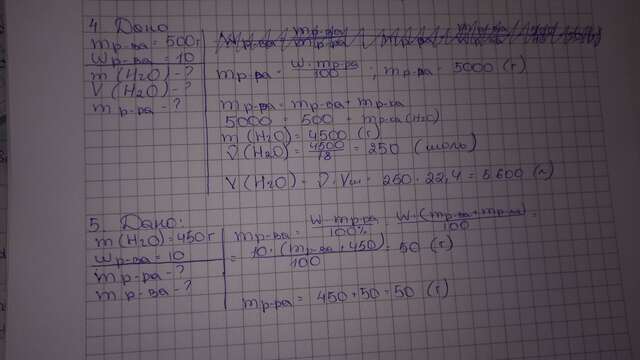 4. Дано
mр-ва = 500г
Wр-ва = 10
m(H2O) - ?
V(H2O) - ?
mр-ра - ?
mр-ва = W · mр-ра / 100 ; mр-ра = 5000 (г)
mр-ра = mр-ва + mр-ля
5000 = 500 + mр-ля(H2O)
m(H2O) = 4500 (г)
ν(H2O) = 4500 / 18 = 250 (моль)
V(H2O) = ν · Vm = 250 · 22,4 = 5600 (л)
5. Дано:
m(H2O) = 450г
Wр-ва = 10
mр-ра - ?
mр-ва - ?
mр-ва = W · mр-ра / 100% = W · (mр-ва + mр-ля) / 100 =
= 10 · (mр-ва + 450) / 100 = 50 (г)
mр-ра = 450 + 50 = 50 (г)